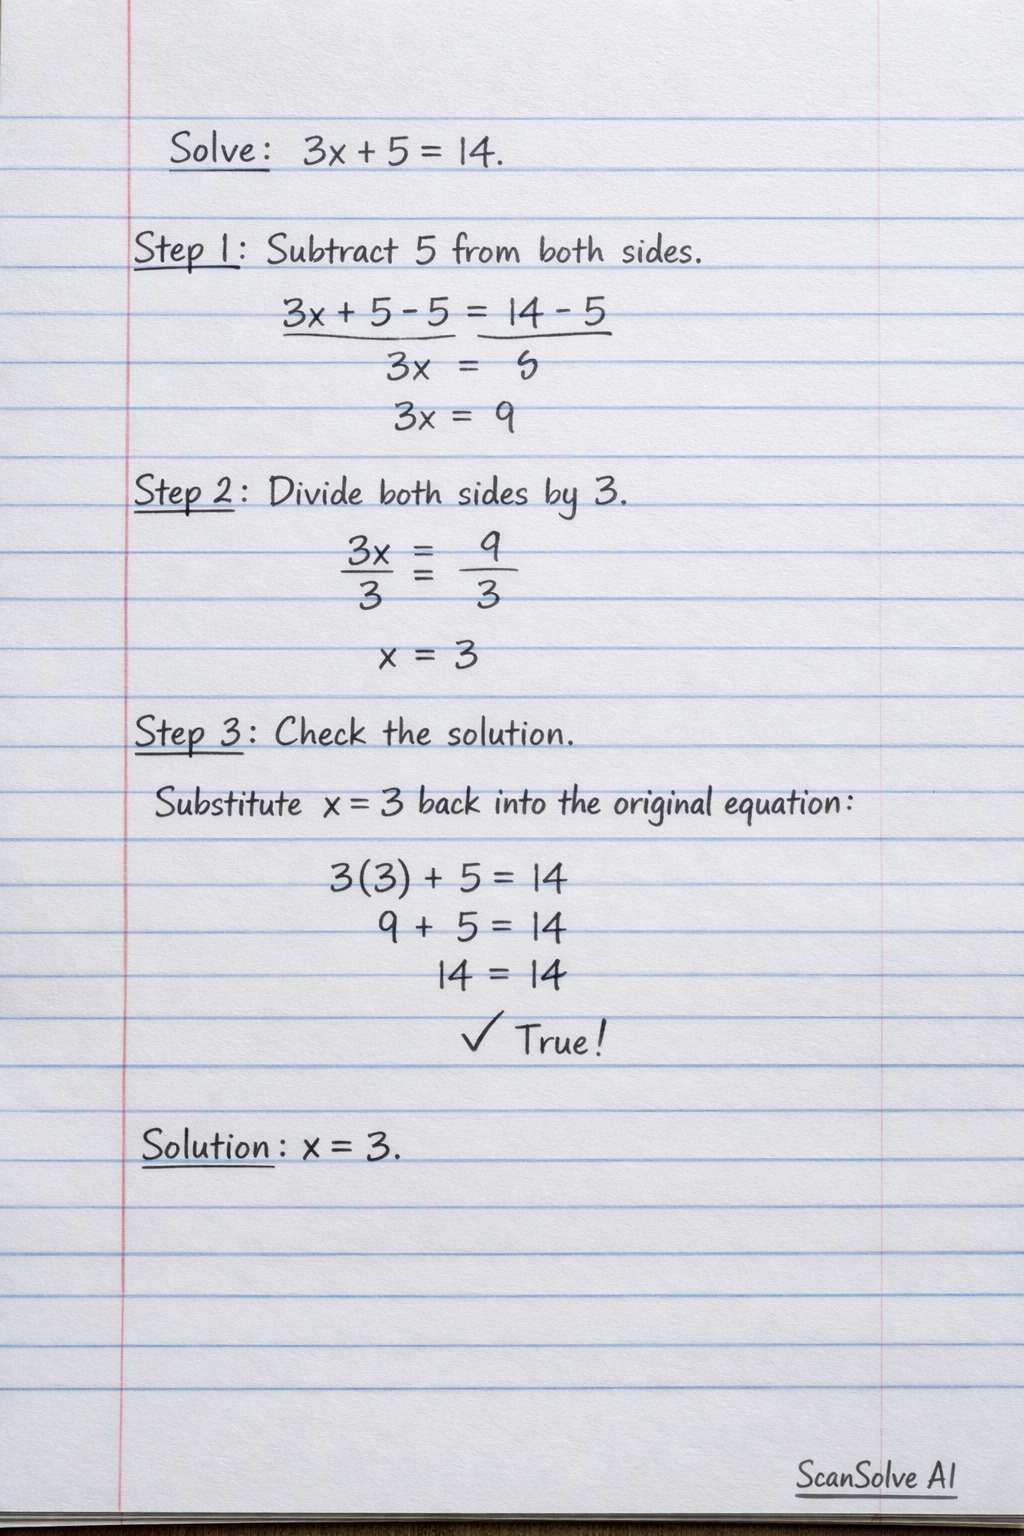 Solve: 3x + 5 = 14.
Step 1: Subtract 5 from both sides.
3x + 5 - 5 = 14 - 5
3x = 5
3x = 9
Step 2: Divide both sides by 3.
3x/3 = = 9/3
x = 3
Step 3: Check the solution.
Substitute x = 3 back into the original equation:
3(3) + 5 = 14
9 + 5 = 14
14 = 14
✓ True!
Solution: x = 3.
ScanSolve AI